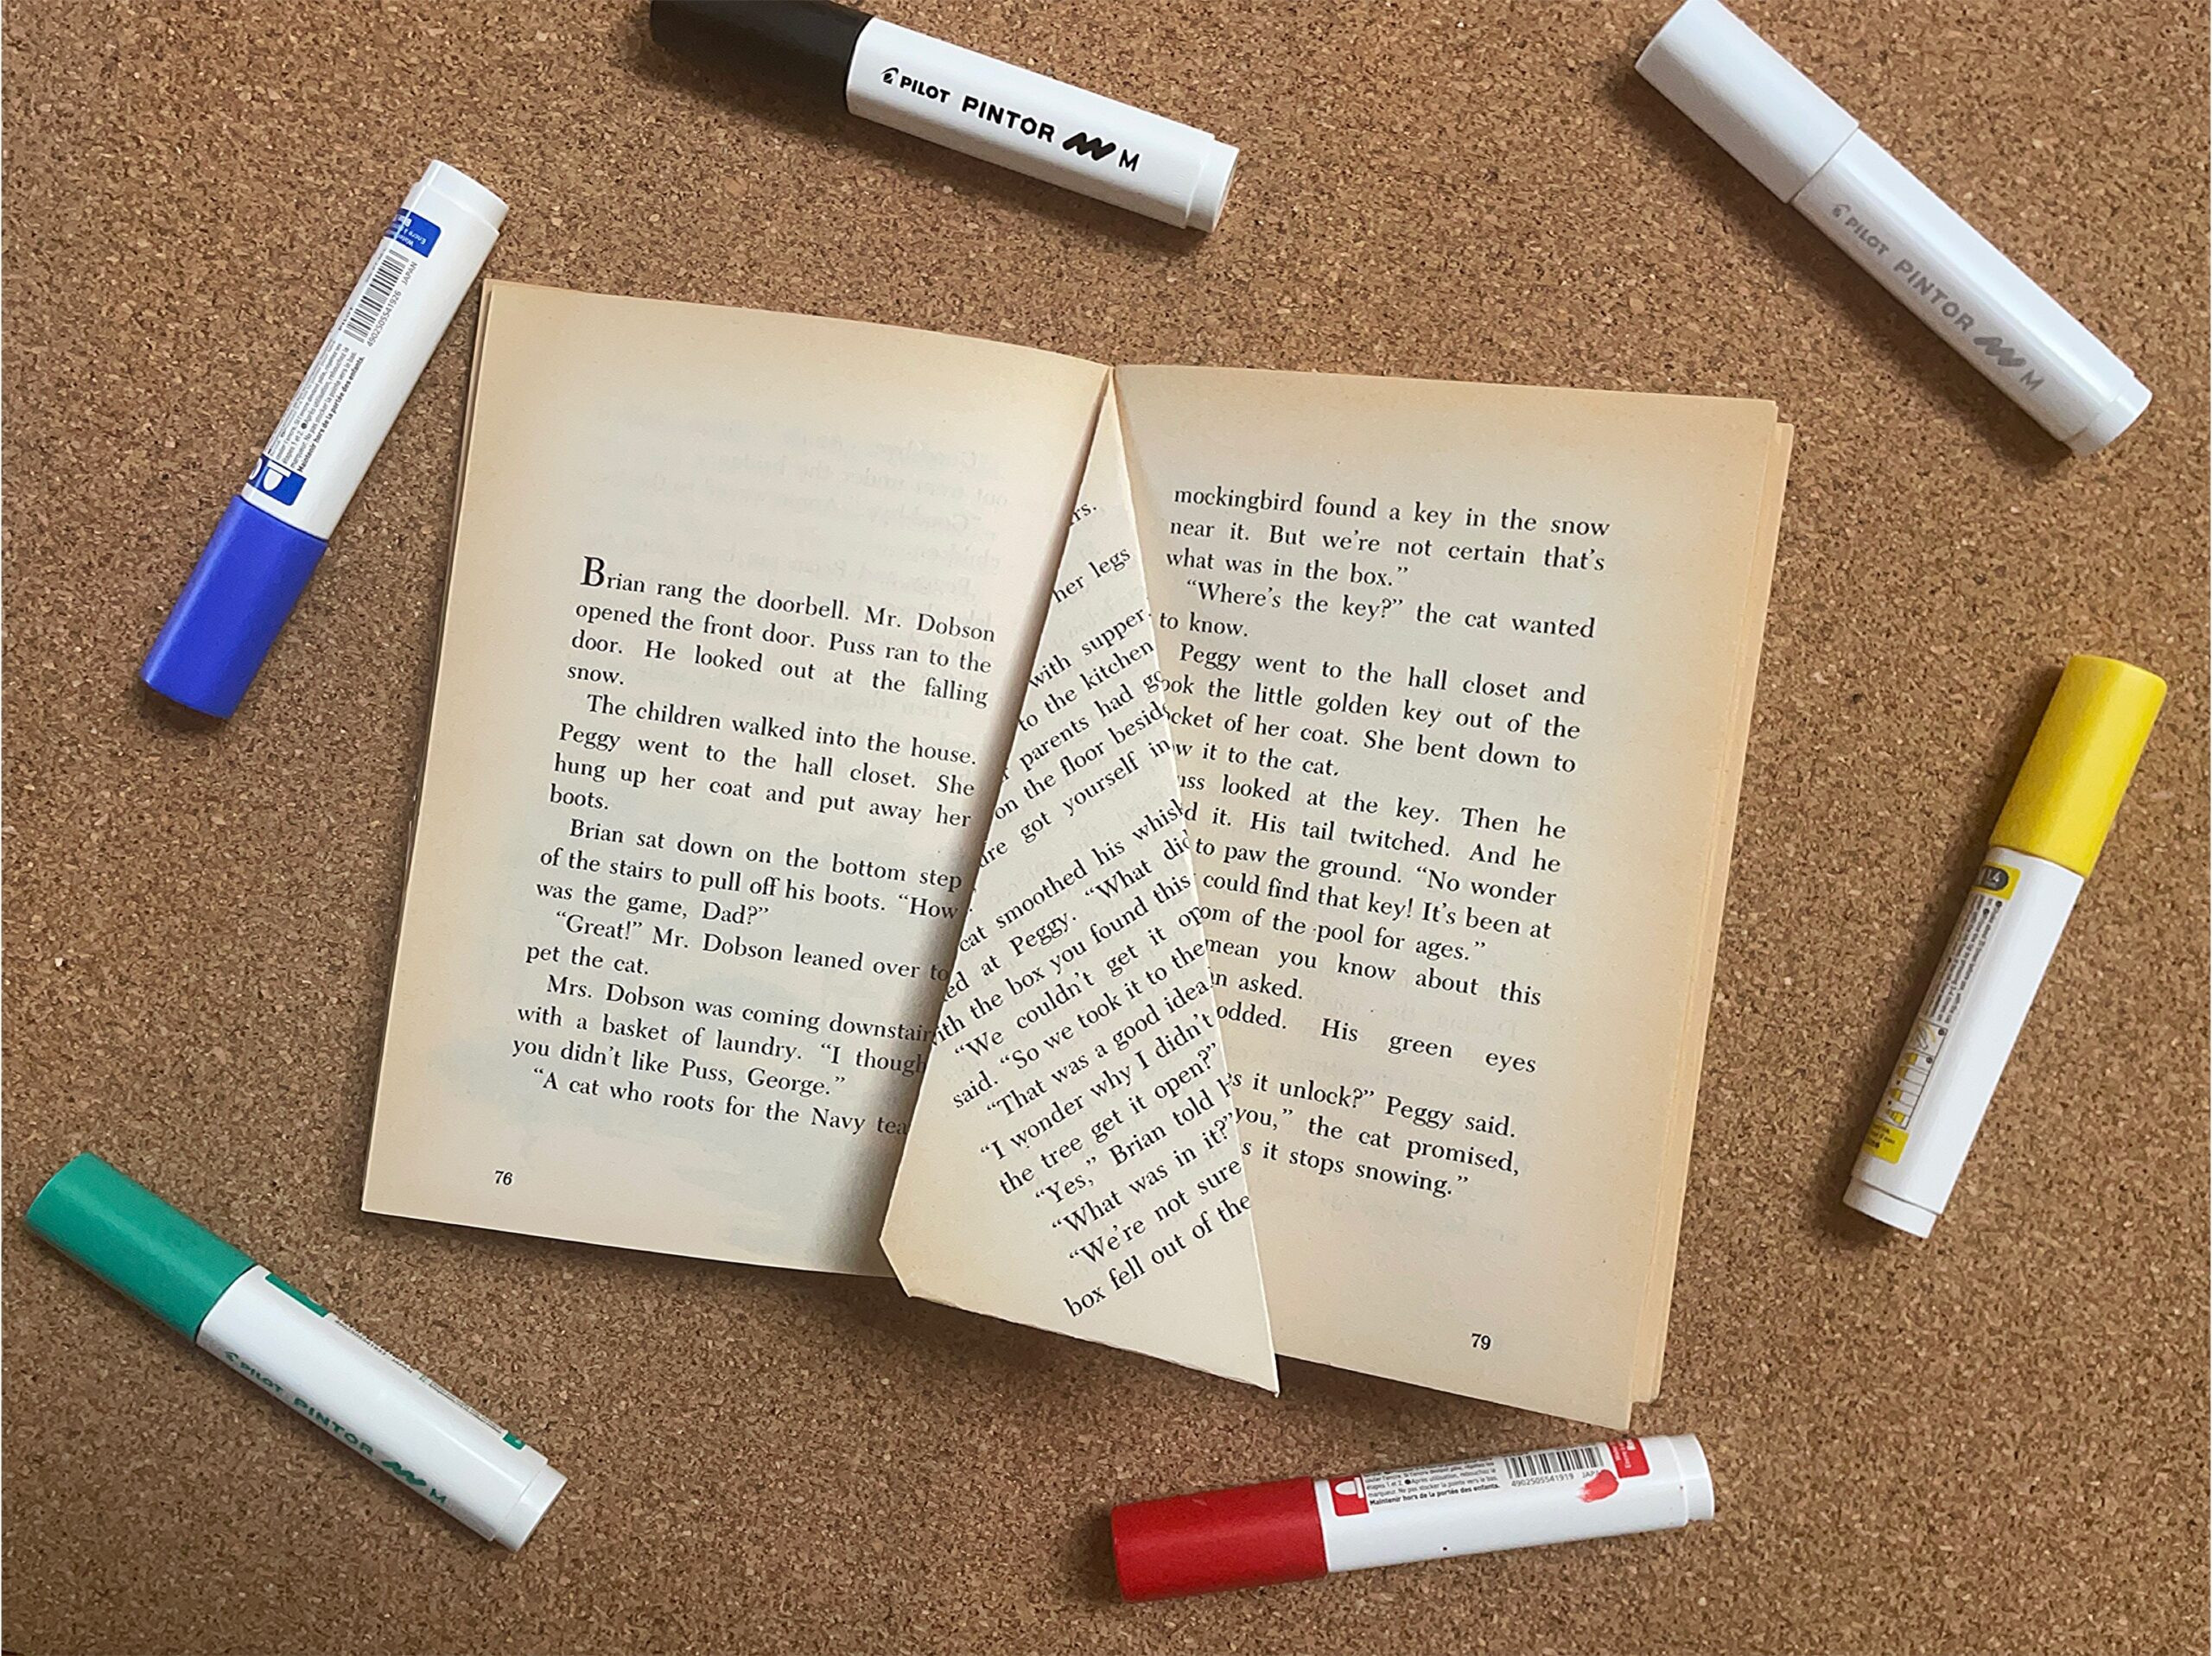 PILOT PINTOR M
PILOT PINTOR M
4902505541926 JAPAN
Maintenir hors de la portée des enfants.
Brian rang the doorbell. Mr. Dobson
opened the front door. Puss ran to the
door. He looked out at the falling
snow.
The children walked into the house.
Peggy went to the hall closet. She
hung up her coat and put away her
boots.
Brian sat down on the bottom step
of the stairs to pull off his boots. “How
was the game, Dad?”
“Great!” Mr. Dobson leaned over to
pet the cat.
Mrs. Dobson was coming downstair
with a basket of laundry. “I though
you didn’t like Puss, George.”
“A cat who roots for the Navy tea
76
rs.
her legs
with supper.
to the kitchen
parents had go
on the floor besid
re got yourself in
cat smoothed his whisk
ed at Peggy. “What did
ith the box you found this
“We couldn’t get it op
said. “So we took it to the
“That was a good idea
“I wonder why I didn’t
the tree get it open?”
“Yes,” Brian told h
“What was in it?”
“We’re not sure
box fell out of the
mockingbird found a key in the snow
near it. But we’re not certain that’s
what was in the box.”
“Where’s the key?” the cat wanted
to know.
Peggy went to the hall closet and
ook the little golden key out of the
cket of her coat. She bent down to
w it to the cat.
uss looked at the key. Then he
d it. His tail twitched. And he
to paw the ground. “No wonder
could find that key! It’s been at
om of the pool for ages.”
mean you know about this
n asked.
odded. His green eyes
s it unlock?” Peggy said.
you,” the cat promised,
s it stops snowing.”
79
PILOT PINTOR M
Maintenir hors de la portée des enfants.
4902505541919 JAPA